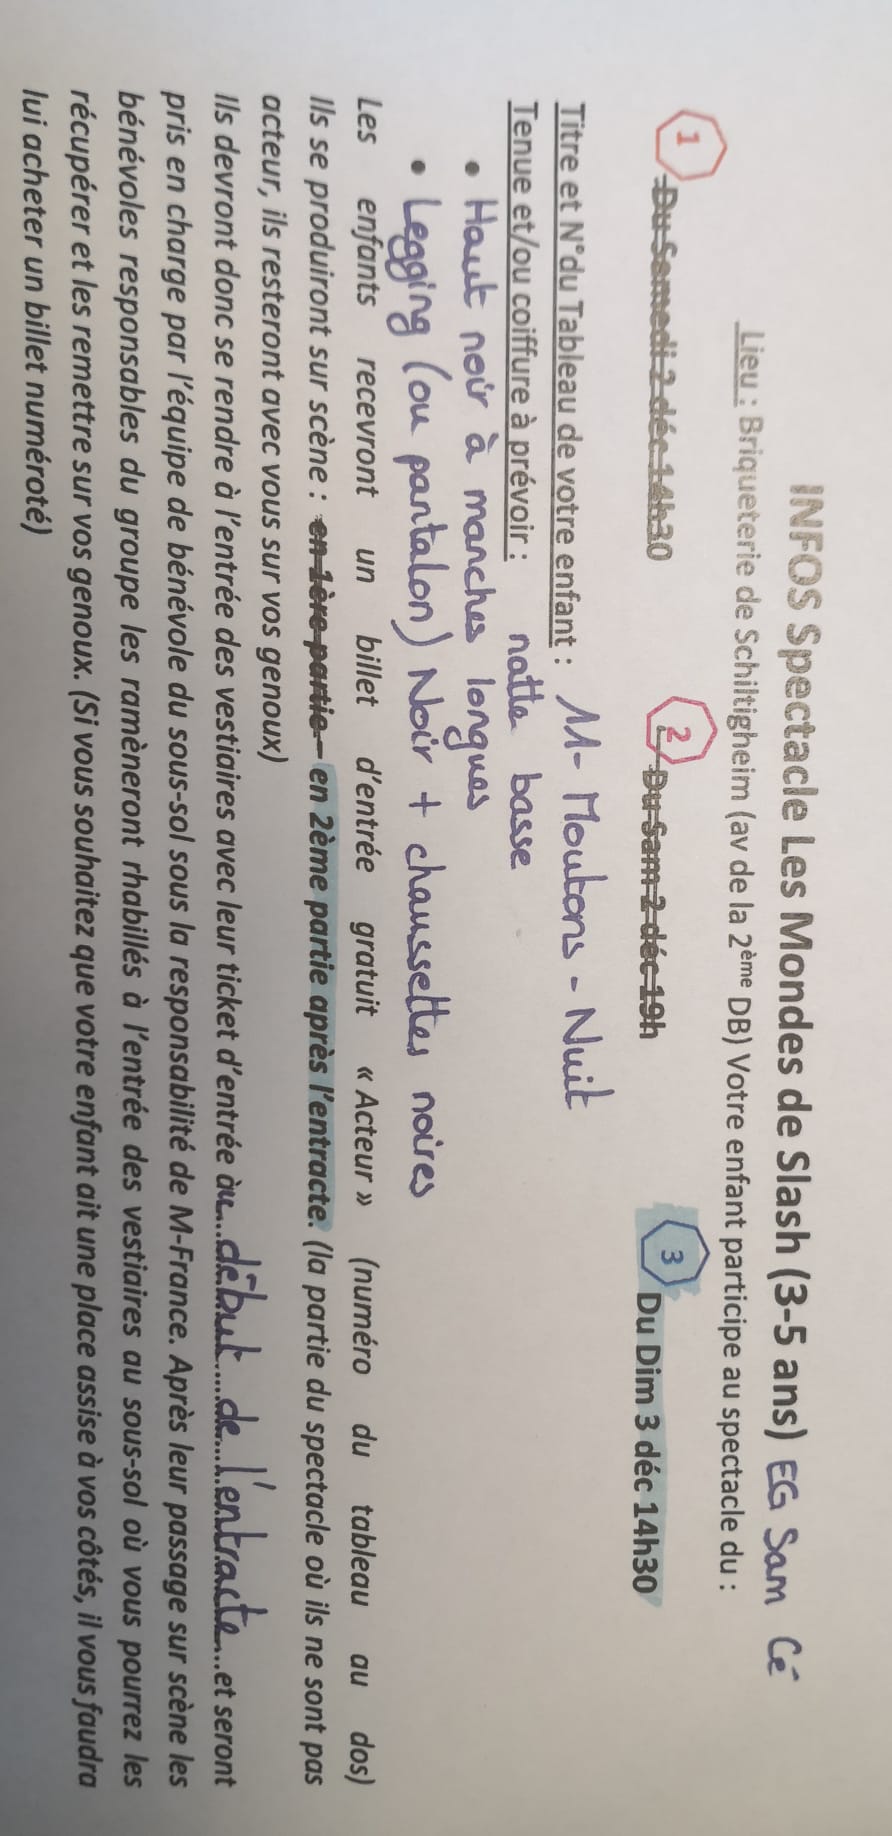 INFOS Spectacle Les Mondes de Slash (3-5 ans) EG Sam Cé
Lieu : Briqueterie de Schiltigheim (av de la 2ème DB) Votre enfant participe au spectacle du :
1 Du Samedi 2 déc 14h30 2 Du Sam 2 déc 19h 3 Du Dim 3 déc 14h30
Titre et N°du Tableau de votre enfant : 11- Moutons - Nuit
Tenue et/ou coiffure à prévoir : natte basse
• Haut noir à manches longues
• Legging (ou pantalon) Noir + chaussettes noires
Les enfants recevront un billet d'entrée gratuit « Acteur » (numéro du tableau au dos)
Ils se produiront sur scène : en 1ère partie - en 2ème partie après l'entracte. (la partie du spectacle où ils ne sont pas
acteur, ils resteront avec vous sur vos genoux)
Ils devront donc se rendre à l'entrée des vestiaires avec leur ticket d'entrée au début de l'entracte et seront
pris en charge par l'équipe de bénévole du sous-sol sous la responsabilité de M-France. Après leur passage sur scène les
bénévoles responsables du groupe les ramèneront rhabillés à l'entrée des vestiaires au sous-sol où vous pourrez les
récupérer et les remettre sur vos genoux. (Si vous souhaitez que votre enfant ait une place assise à vos côtés, il vous faudra
lui acheter un billet numéroté)